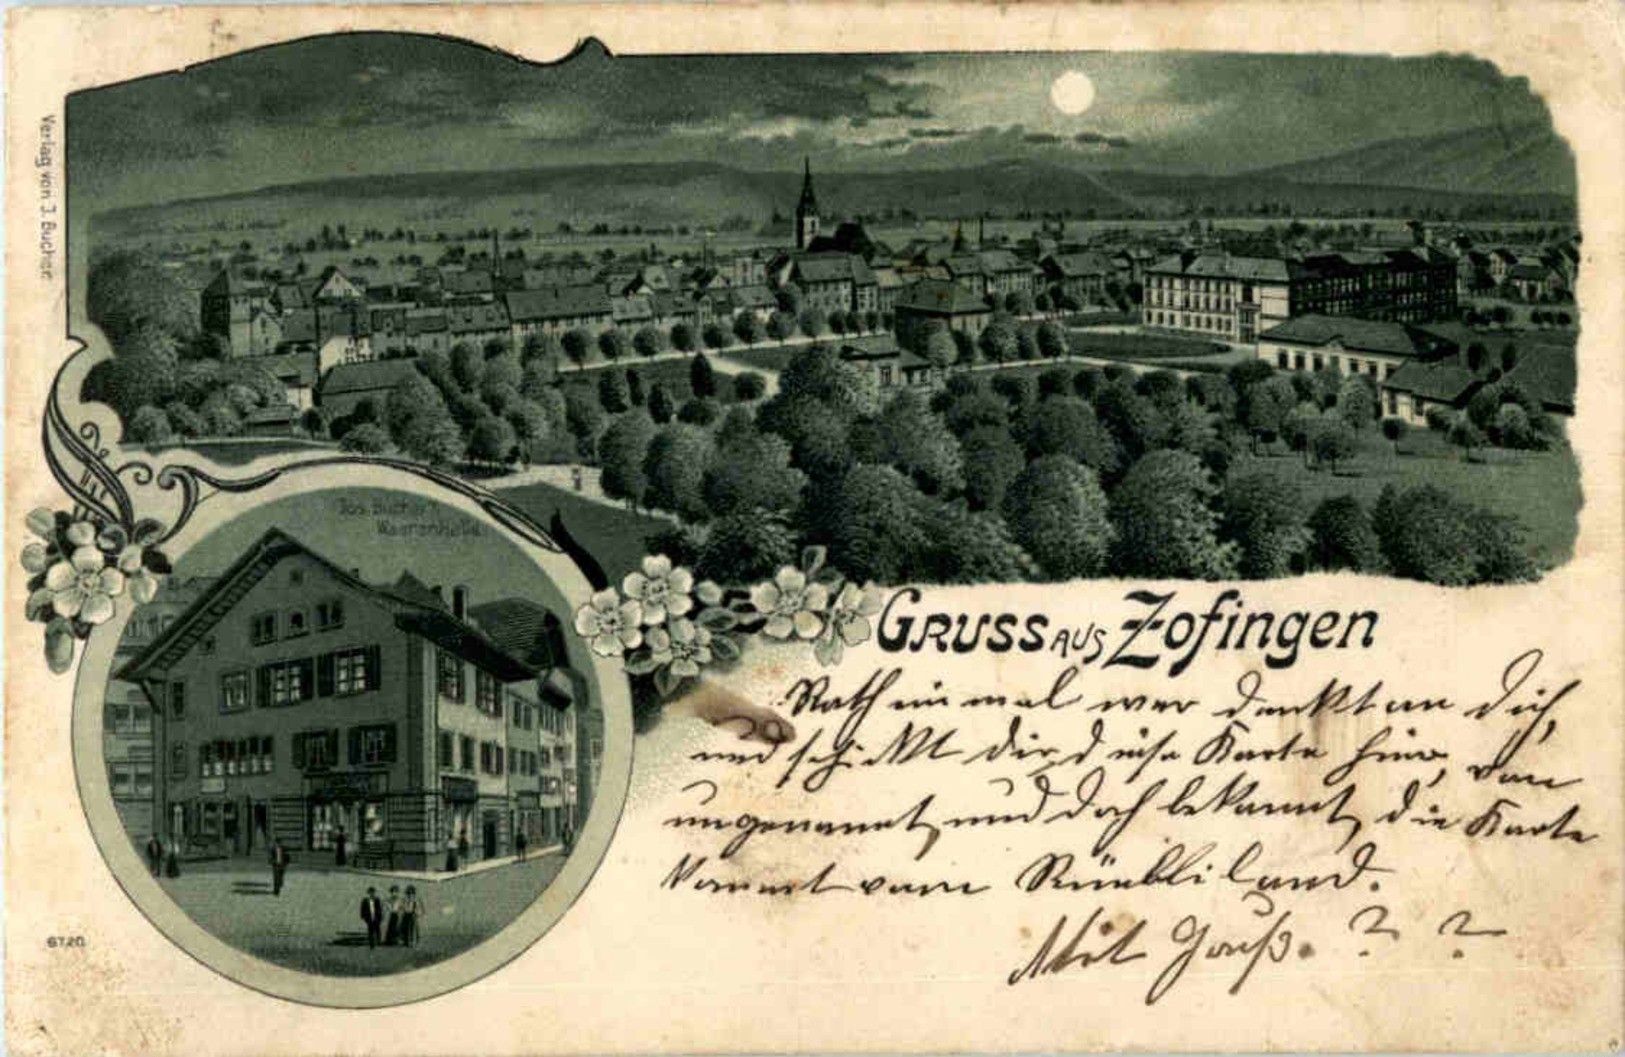 Verlag von J. Bucher.
Jos. Bucher's
Waarenhalle
GRUSS AUS Zofingen
Rath ein mal wer denkt an dich,
und schikt dir diese Karte hin, von
ungenannt, und doch bekannt, die Karte
kommt vom Rüebliland.
Mit Gruß. ? ?
6720